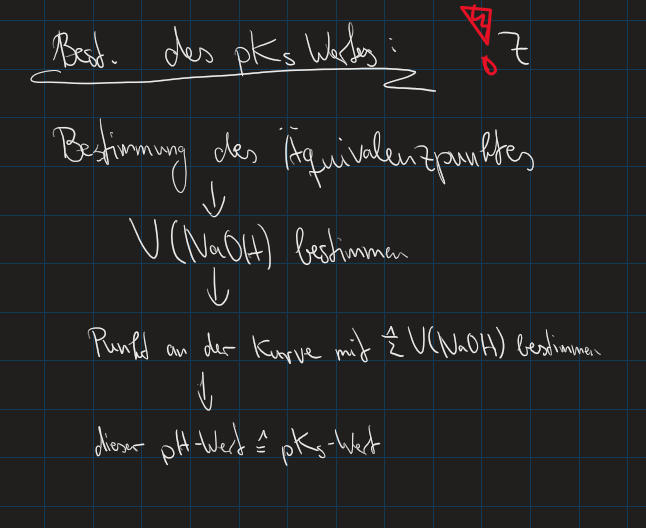 Best. des pKs Wertes: Z
Bestimmung des Äquivalenzpunktes
↓
V(NaOH) bestimmen
↓
Punkt an der Kurve mit ½ V(NaOH) bestimmen
↓
dieser pH-Wert ≙ pKs-Wert